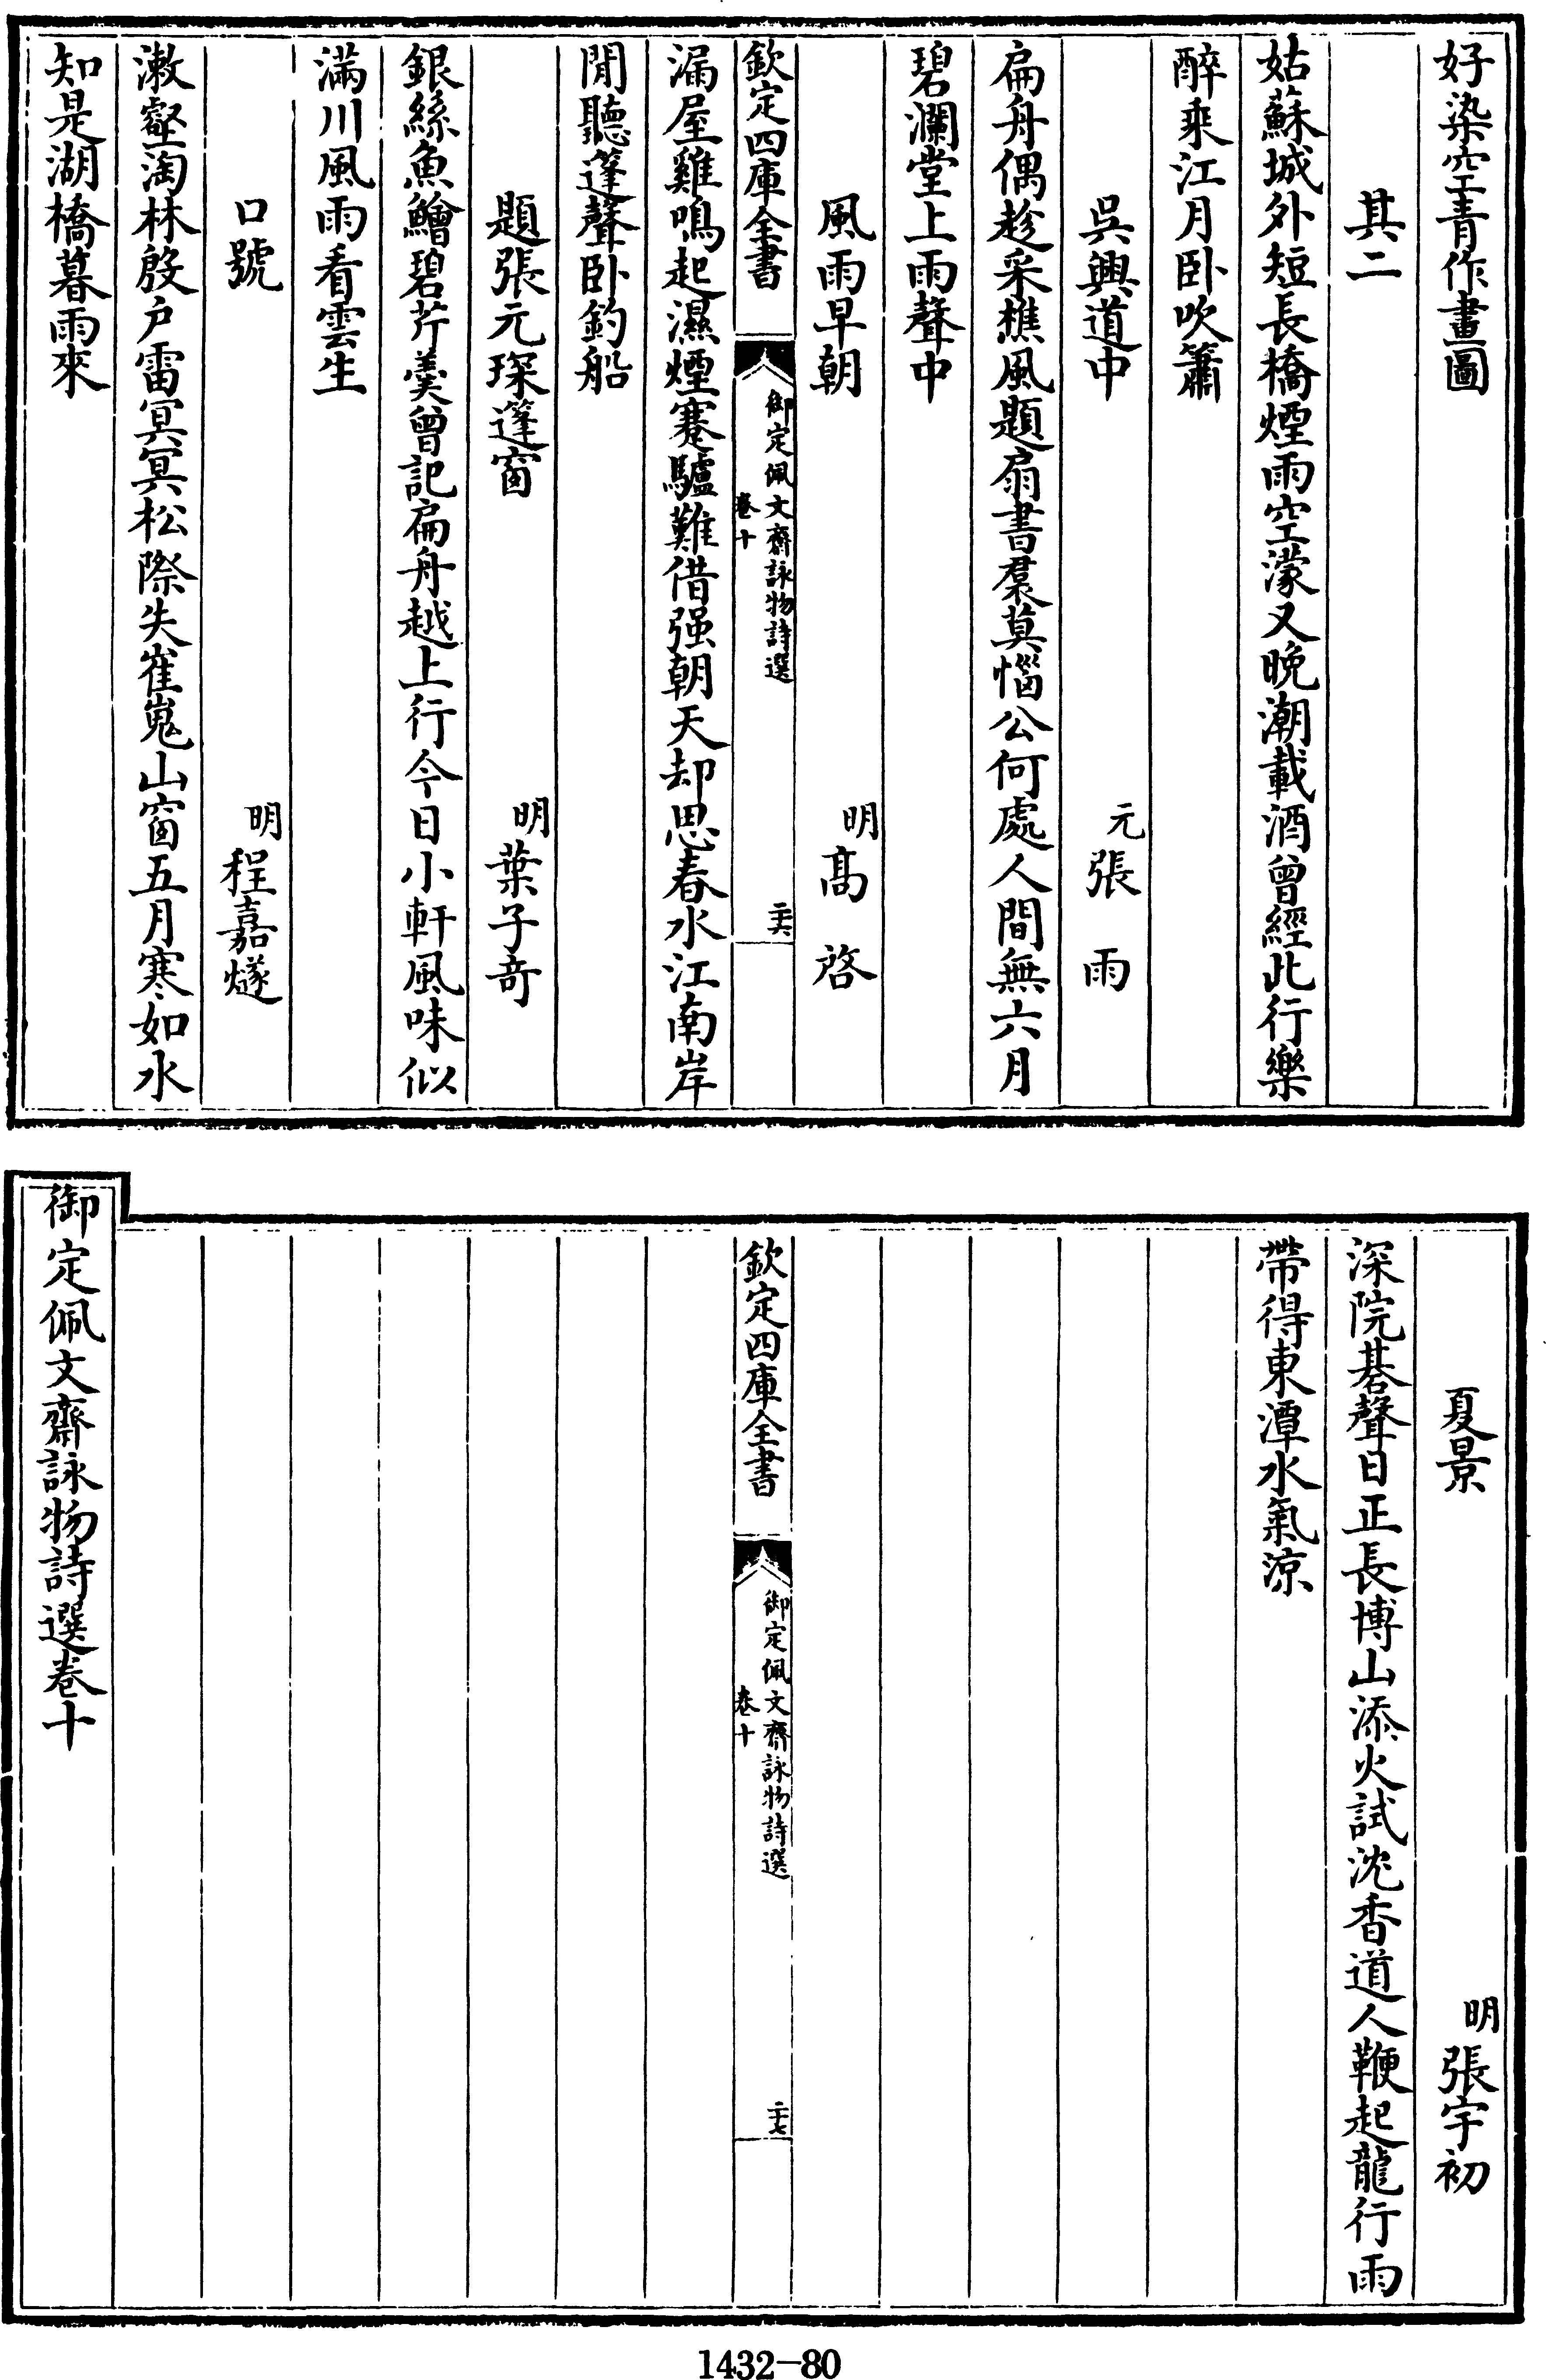 好染空青作畫圖
其二
姑蘇城外短長橋煙雨空濛又晚潮載酒曾經此行樂
醉乘江月卧吹簫
吳興道中
元張雨
扁舟偶趁采樵風題扇書羣莫惱公何處人間無六月
碧瀾堂上雨聲中
風雨早朝
明高啓
欽定四庫全書
御定佩文齋詠物詩選
卷十
二十六
漏屋雞鳴起濕煙蹇驢難借强朝天却思春水江南岸
閒聽篷聲卧釣船
題張元琛篷窗
明葉子奇
銀絲魚鱠碧芹羹曾記扁舟越上行今日小軒風味似
滿川風雨看雲生
口號
明程嘉燧
漱壑淘林殷户雷冥冥松際失崔嵬山窗五月寒如水
知是湖橋暮雨來
夏景
明張宇初
深院碁聲日正長博山添火試沈香道人鞭起龍行雨
帶得東潭水氣凉
欽定四庫全書
御定佩文齋詠物詩選
卷十
二十七
御定佩文齋詠物詩選卷十
1432-80